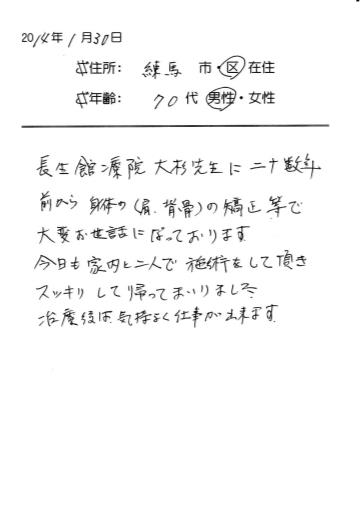 2014年1月30日
ご住所: 練馬 市・区 在住
ご年齢: 70 代 男性・女性
長生館療院 大杉先生に二十数年
前から 身体の(肩、背骨)の矯正等で
大変お世話になっております
今日も家内と二人で施術をして頂き
スッキリして帰ってまいりました
治療後は気持よく仕事が出来ます